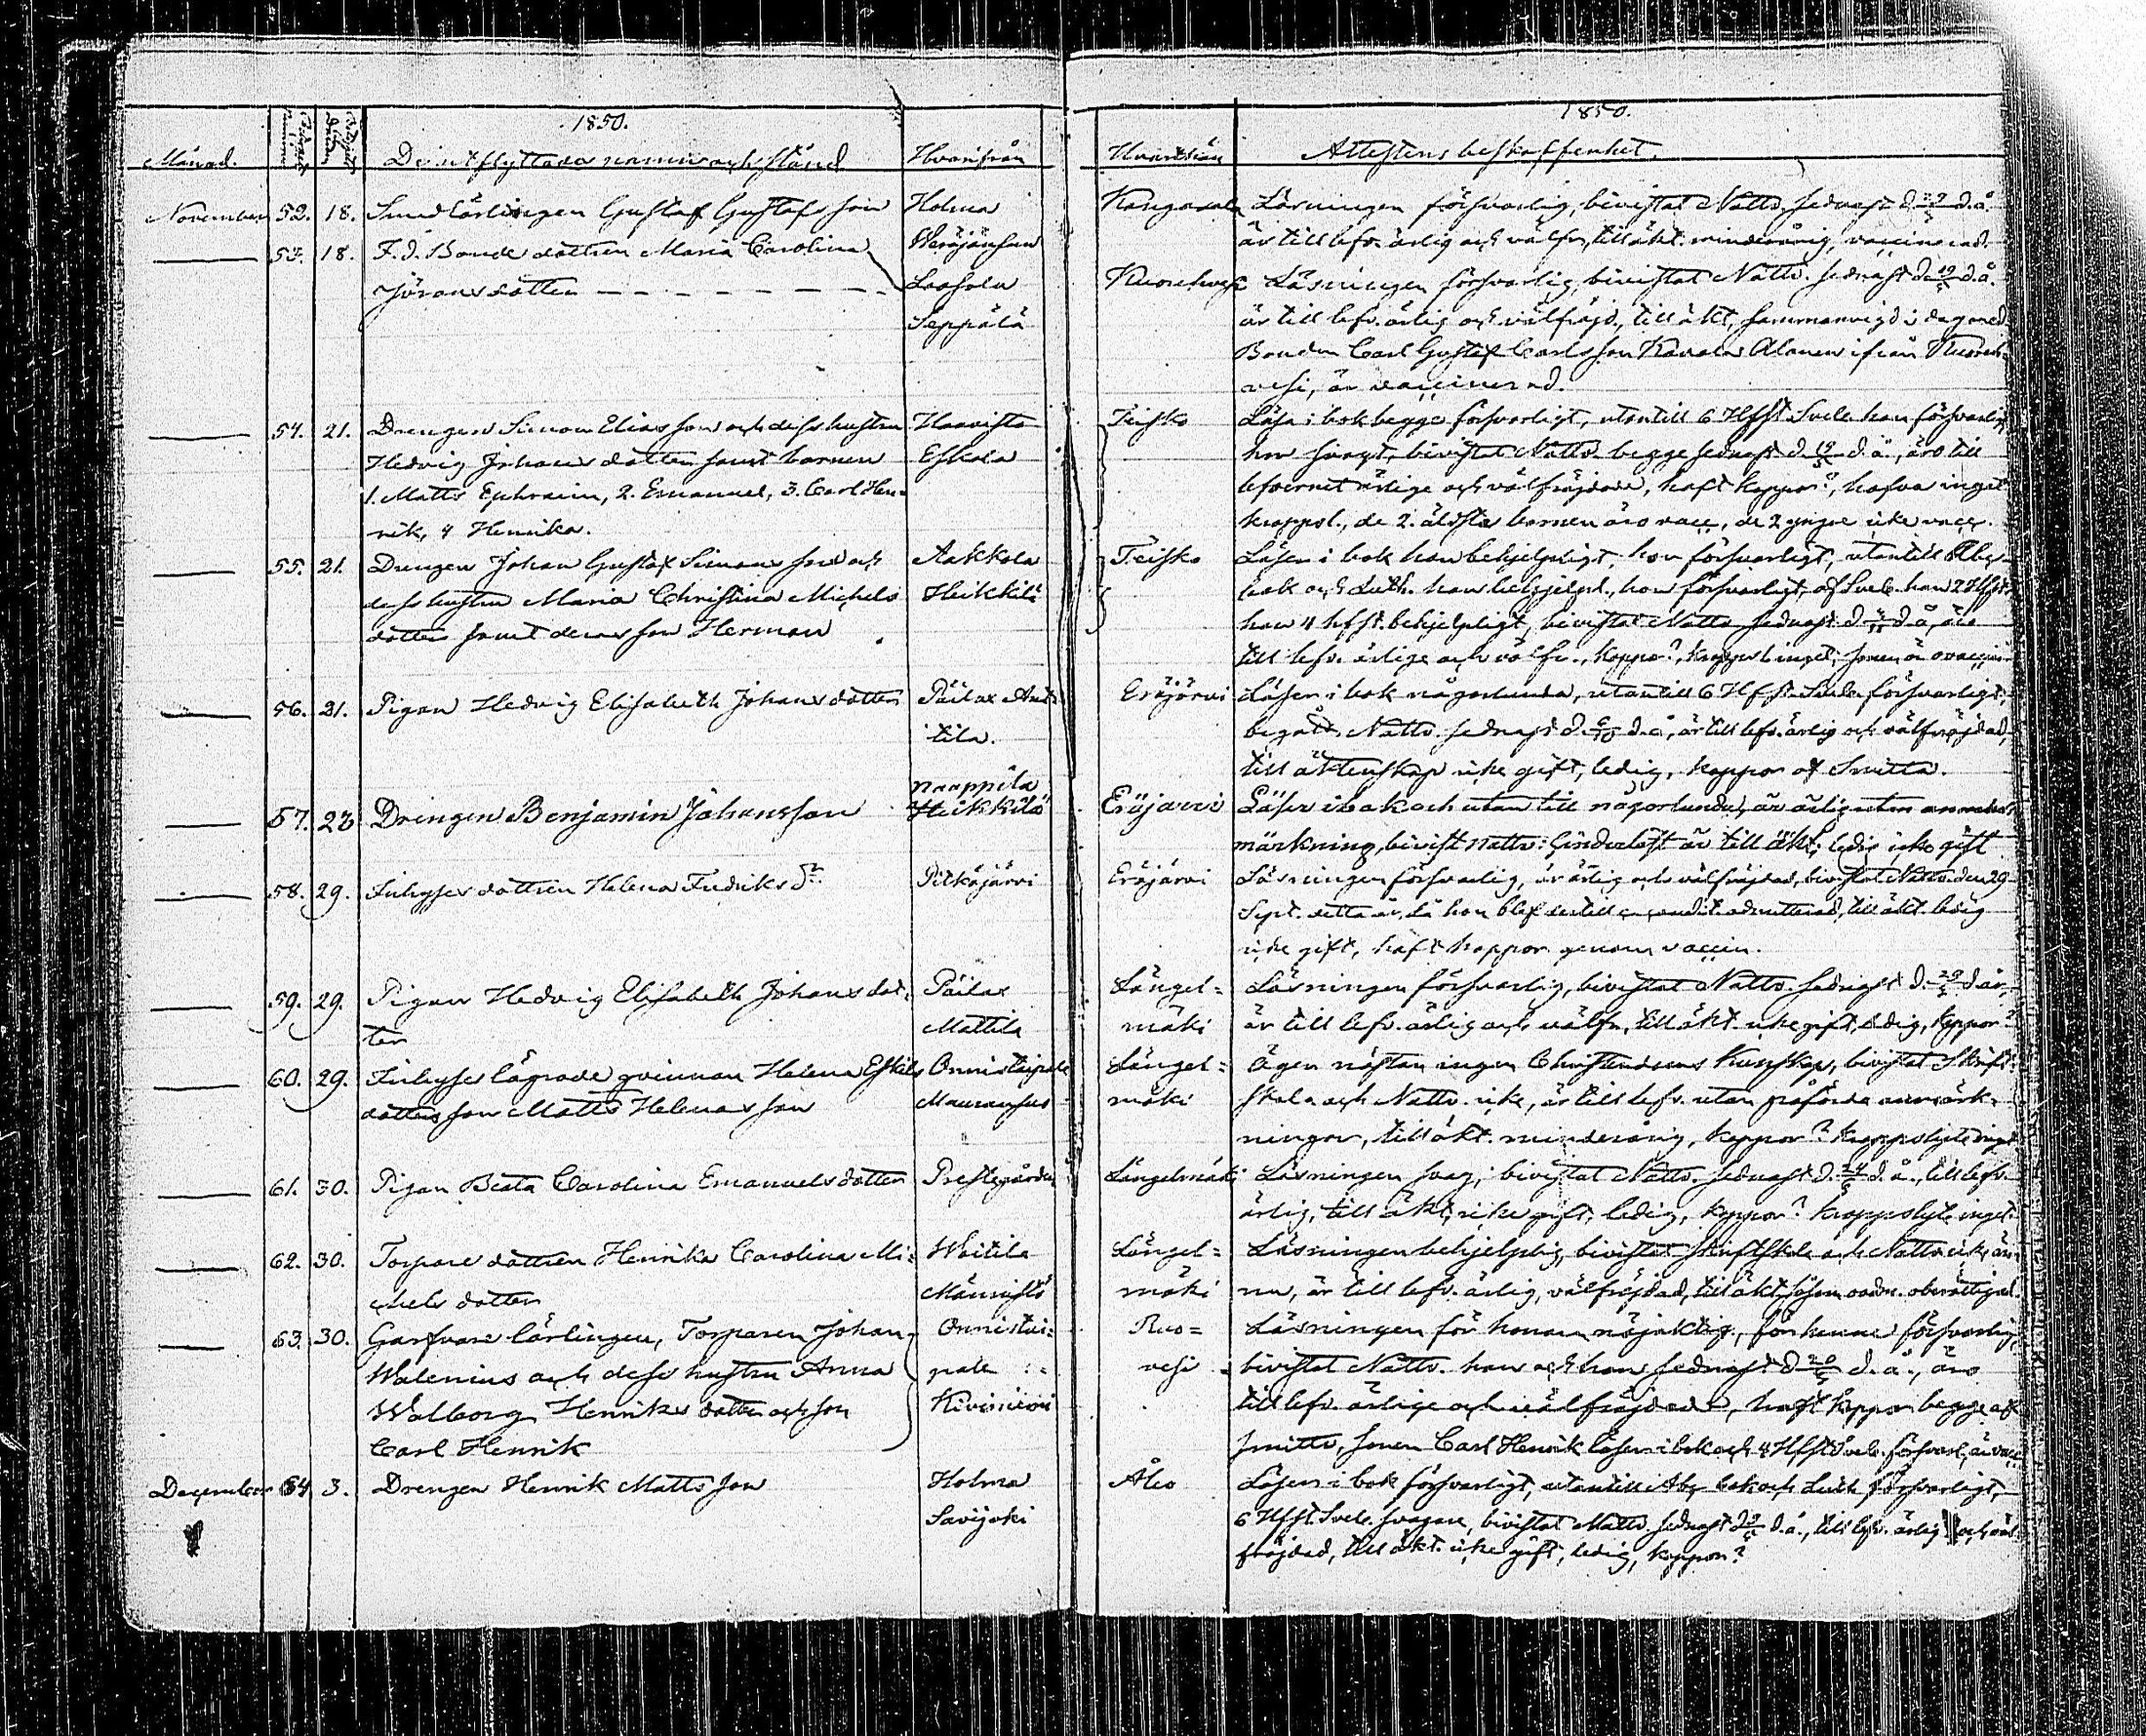 1850.
Månad.
De utflyttades namn och stånd
Hvarifrån
November 52. 18. Smedlärlingen Gustaf Gustafsson Holma
53. 18. F.d. Bonde dottren Maria Carolina
Jörans dotter Laasola
Seppälä
54. 21. Drengen Simon Eliasson och dess hustru Haavisto
Hedvig Johans dotter samt barnen Eskola
1. Matts Ephraim, 2. Emanuel, 3. Carl Hen-
rik, 4 Henrika.
55. 21. Drengen Johan Gustaf Simonsson och Aakkola
dess hustru Maria Christina Michels Heikkilä
dotter samt deras son Herman
56. 21. Pigan Hedvig Elisabeth Johans dotter Päilax Ant-
tila.
Naappila
57. 23 Drengen Benjamin Johansson Heikkilä
58. 29. Inhyses dottren Helena Fredriks Dr. Pitkäjärvi
59. 29. Pigan Hedvig Elisabeth Johans dot= Päilax
ter Mattila
60. 29. Inhyses lägrade qvinnan Helena Eskils Onnistaipale
dotters son Matts Helenasson
61. 30. Pigan Beata Carolina Emanuels dotter Prestgården
62. 30. Torpare dottren Henrika Carolina Mi= Woitila
chels dotter Männistö
63. 30. Garfvare lärlingen, Torparen Johan Onnistai=
Walenius och dess hustru Anna pale
Walborg Henriks dotter och son Kiviniemi
Carl Henrik
December 64 3. Drengen Henrik Mattsson Holma
Savijoki
1850.
Attestens beskaffenhet.
Kangasala Läsningen försvarlig, bivistat Nattv. sednast d. 29/9 d.å.
är till lefv. ärlig och välfr., till äkt. minderårig, vaccinerad.
Kuorehvesi Läsningen försvarlig, bivistat Nattv. sednast d. d.å.
är till lefv. ärlig och välfräjd., till äkt. sammanvigd i dag med
Bonden Carl Gustaf Carlsson Alanen ifrån Kuoreh-
vesi, är vaccinerad.
Teisko Läsa i bok begge försvarligt, utantill 6 Hfst. Sveb. han försvarligt,
hon svagt, bivistat Nattv. begge sednast d. d.å., äro till
lefvernet ärlige och välfräjdade, haft koppor?, hafva inget
kroppsl., de 2. äldsta barnen äro vacc., de 2 yngre icke vacc.
Teisko Läser i bok han behjelpligt, hon försvarligt, utantill Abc-
bok och Luth. han behjelpl., hon försvarligt, af Sveb. han 2 Hfst.
hon 4 hfst. behjelpligt, bivistat Nattv. sednast d. d.å., äro
till lefv. ärlige och välfr., koppor?, kroppsl. inget, sonen är ovaccin.
Eräjärvi Läser i bok någorlunda, utantill 6 Hfst. Sveb. försvarligt,
begått Nattv. sednast d. 6/10 d.å., är till lefv. ärlig och välfräjdad,
till äktenskap icke gift, ledig, koppor af Smitta.
Eräjärvi Läser i bok och utan till någorlunda, är ärlig utan
märkning, bivist. Nattv. är till äkt. ledig icke gift
Eräjärvi Läsningen försvarlig, är ärlig och välfräjdad, bivistat Nattv. den 29
Sept. detta år, då hon blef dertill admitterad, till äkt. ledig
icke gift, haft koppor genom vaccin.
Längel= Läsningen försvarlig, bivistat Nattv. sednast d. d. år,
mäki är till lefv. ärlig och välfr., till äkt. icke gift, ledig, koppor?
Längel= Ägen nästan ingen Christendoms Kunskap, bivistat Skrift-
mäki skola och Nattv. icke, är till lefv. utan påförda anmärk-
ningar, till äkt. minderårig, koppor? kroppslyte inget
Längelmäki Läsningen svag, bivistat Nattv. sednast d. d.å., till lefv.
ärlig, till äkt. icke gift, ledig, koppor? kroppslyte inget.
Längel= Läsningen behjelplig, bivistat skriftskola och Nattv. icke än-
mäki nu, är till lefv. ärlig, välfräjdad, till äkt.
Ruo= Läsningen för honom nöjaktig, för henne försvarlig,
vesi bivistat Nattv. han och hon sednast d. d.å., äro
till lefv. ärlige och välfräjdade, haft koppor begge af
smitta, sonen Carl Henrik läser i bok och 4 Hfst. Sveb. försvarl., är vacc.
Åbo Läser i bok försvarligt, utantill Abc bok och Luth försvarligt,
6 Hfst. Sveb. svagare, bivistat Nattv. sednast d. d.å., till lefv. ärlig och väl-
fräjdad, till äkt. icke gift, ledig, koppor?